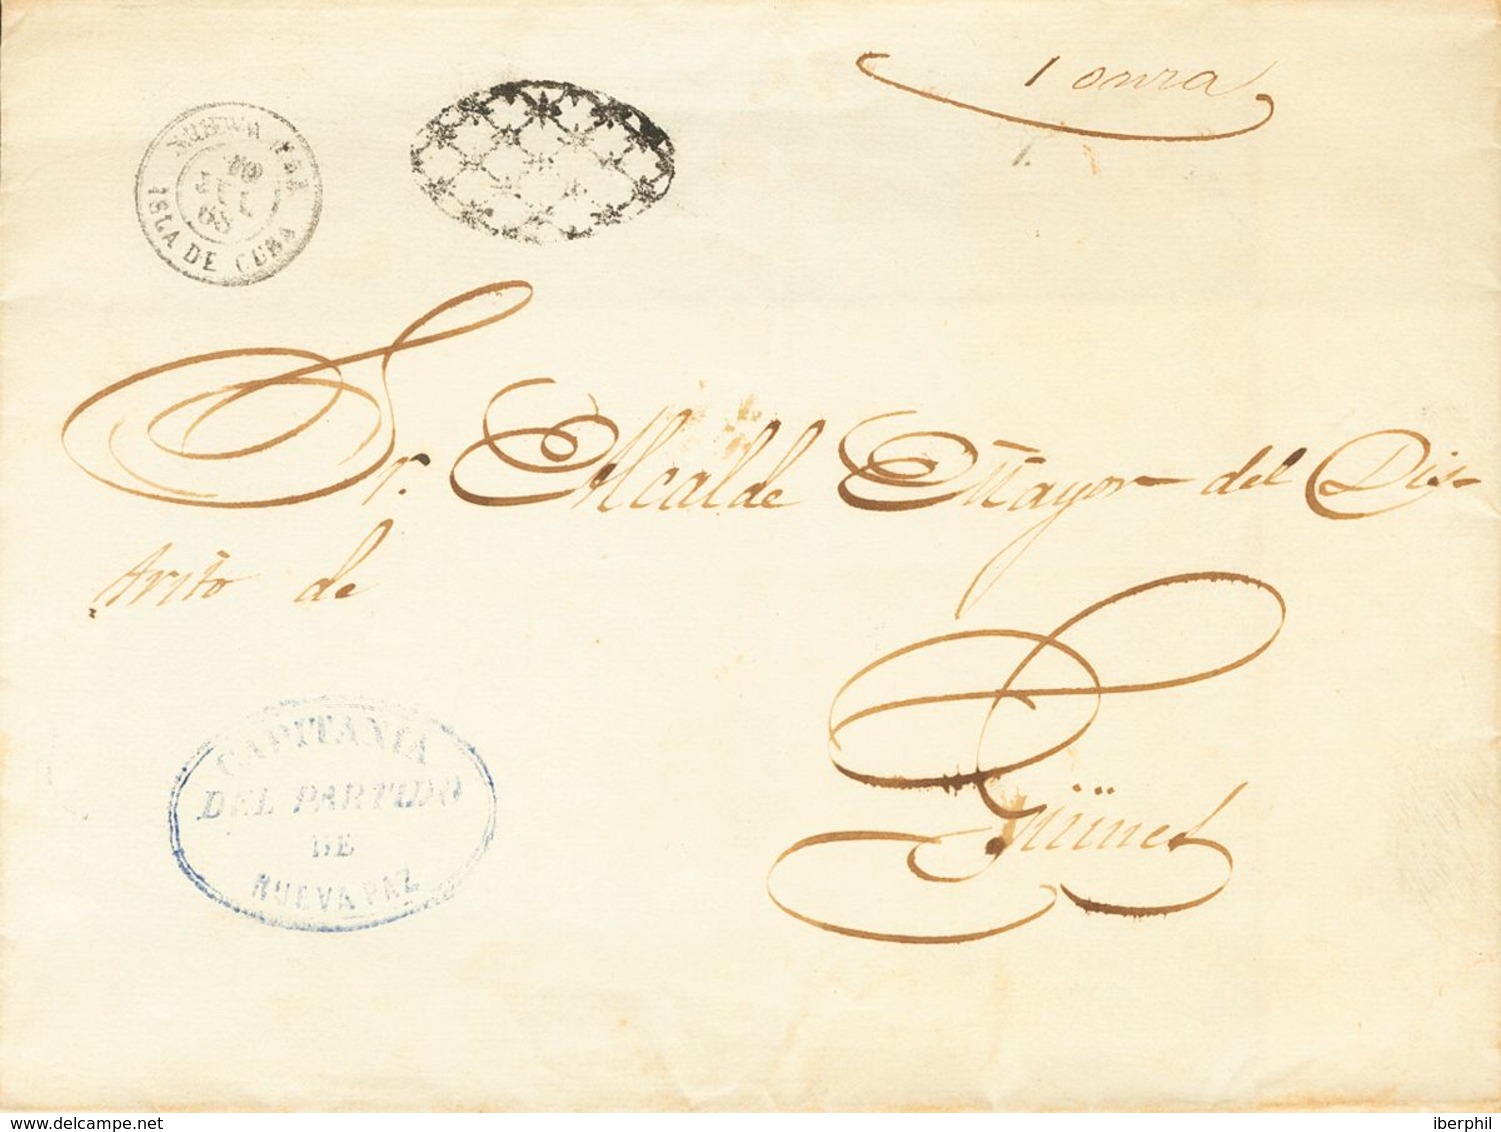 1 onza
NUEVA PAZ
ISLA DE CUBA
Sr. Alcalde Mayor del Dis-
trito de
Güines
CAPITANIA
DEL PARTIDO
DE
NUEVA PAZ
delcampe.net
iberphil